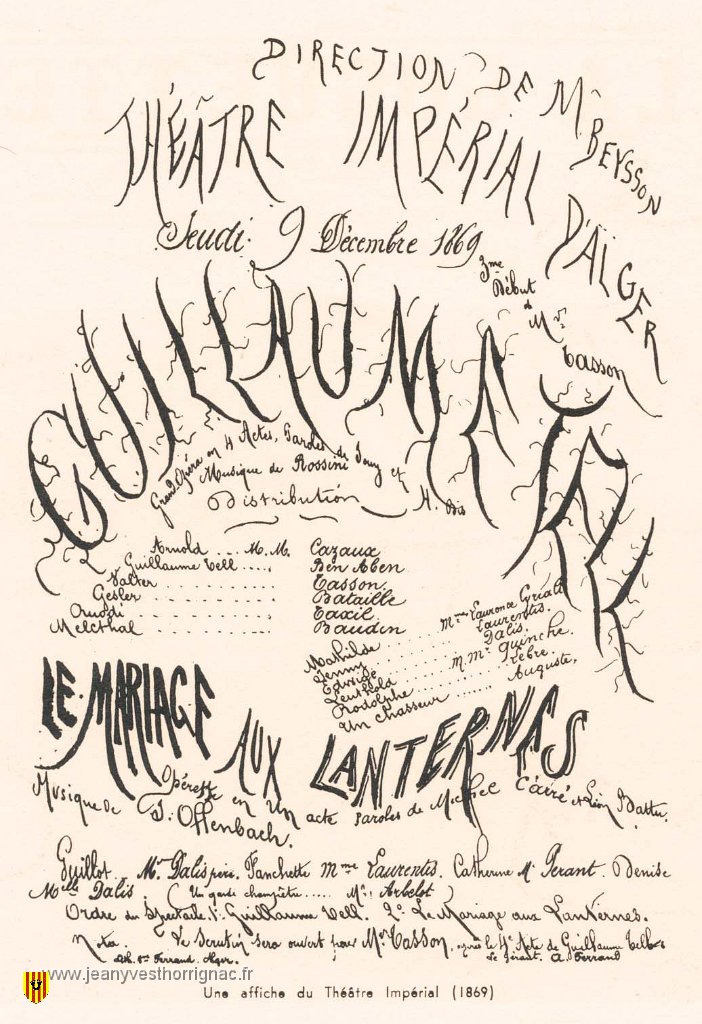 DIRECTION DE Mr BEYSSON
THÉÂTRE IMPÉRIAL D'ALGER
Jeudi 9 Décembre 1869
3me Début de Mr Tasson
GUILLAUME TELL
Grand Opéra en 4 Actes, Paroles de Jouy et H. Bis
Musique de Rossini
Distribution
Arnold ... M.M. Cazaux
Guillaume Tell ..... Ben Aben
Valter ..... Tasson
Gesler ..... Bataille
Ruodi ..... Taxil
Melcthal ..... Baudin
Mathilde ..... Mmes Laurence
Jenny ..... Laurentis.
Edwige ..... Dalis.
Leuthold ..... M.Mrs Guinche.
Rodolphe ..... Lebre.
Un chasseur ..... Auguste.
LE MARIAGE AUX LANTERNES
Opérette en un acte Paroles de Michel Carré et Léon Battu.
Musique de J. Offenbach.
Guillot. Mr Dalis père. Fanchette Mme Laurentis. Catherine Me Perant. Denise
Melle Dalis (Un garde champêtre..... Mr. Arbelot)
Ordre du Spectacle. 1º Guillaume Tell. 2º Le Mariage aux Lanternes.
Nota. Le Scrutin sera ouvert pour Mr Tasson, après le 4e Acte de Guillaume Tell
Lith. Ferrand. Alger.
Le Gérant. A. Ferrand
www.jeanyvesthorrignac.fr
Une affiche du Théâtre Impérial (1869)